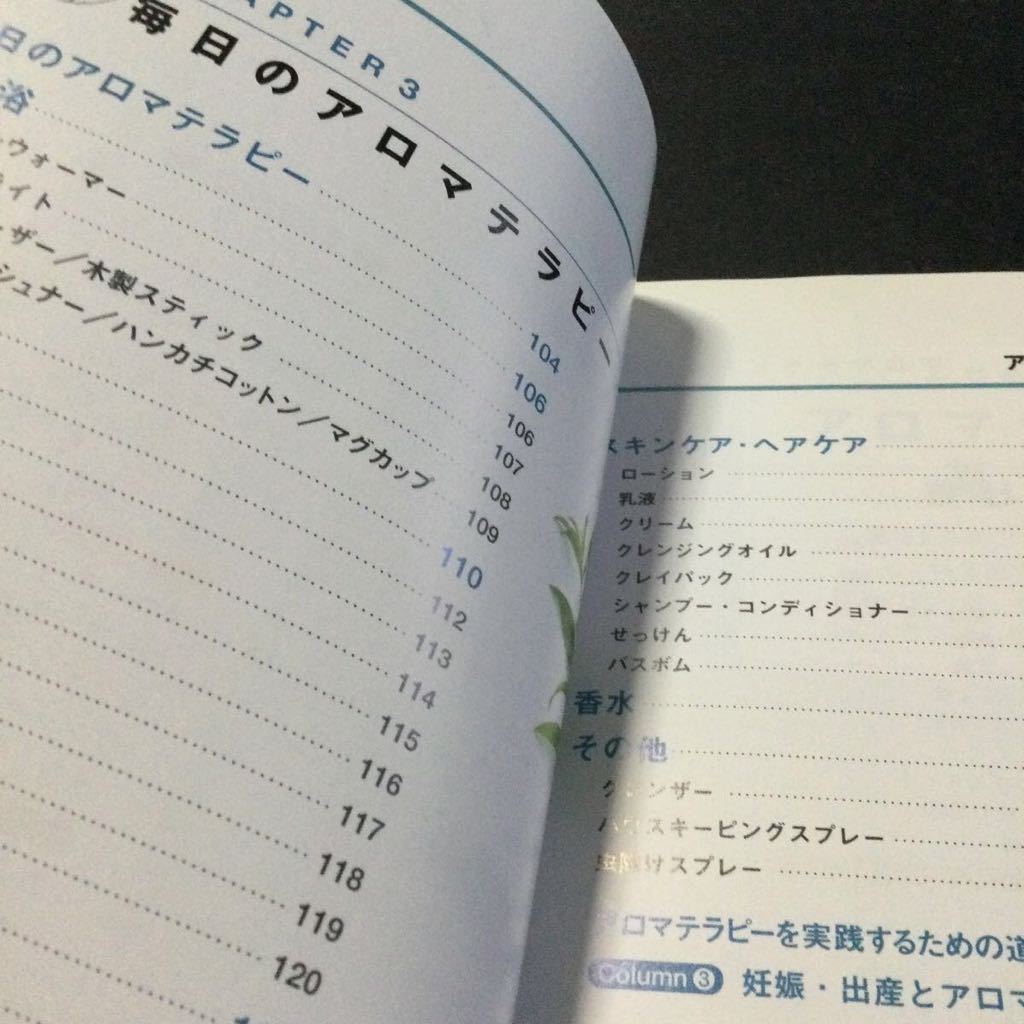 APTER 3
毎日のアロマテラピー
日のアロマテラピー 104
浴 106
ウォーマー 106
イト 107
ザー/木製スティック 108
シュナー/ハンカチコットン/マグカップ 109
110
112
113
114
115
116
117
118
119
120
ア
スキンケア・ヘアケア
ローション
乳液
クリーム
クレンジングオイル
クレイパック
シャンプー・コンディショナー
せっけん
バスボム
香水
その他
クレンザー
ハウスキーピングスプレー
虫除けスプレー
アロマテラピーを実践するための道
Column 3 妊娠・出産とアロマ